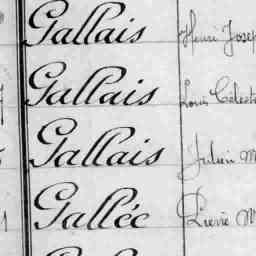 Gallais Henri Josep
Gallais Louis Célest
Gallais Julien M
Gallée Pierre M